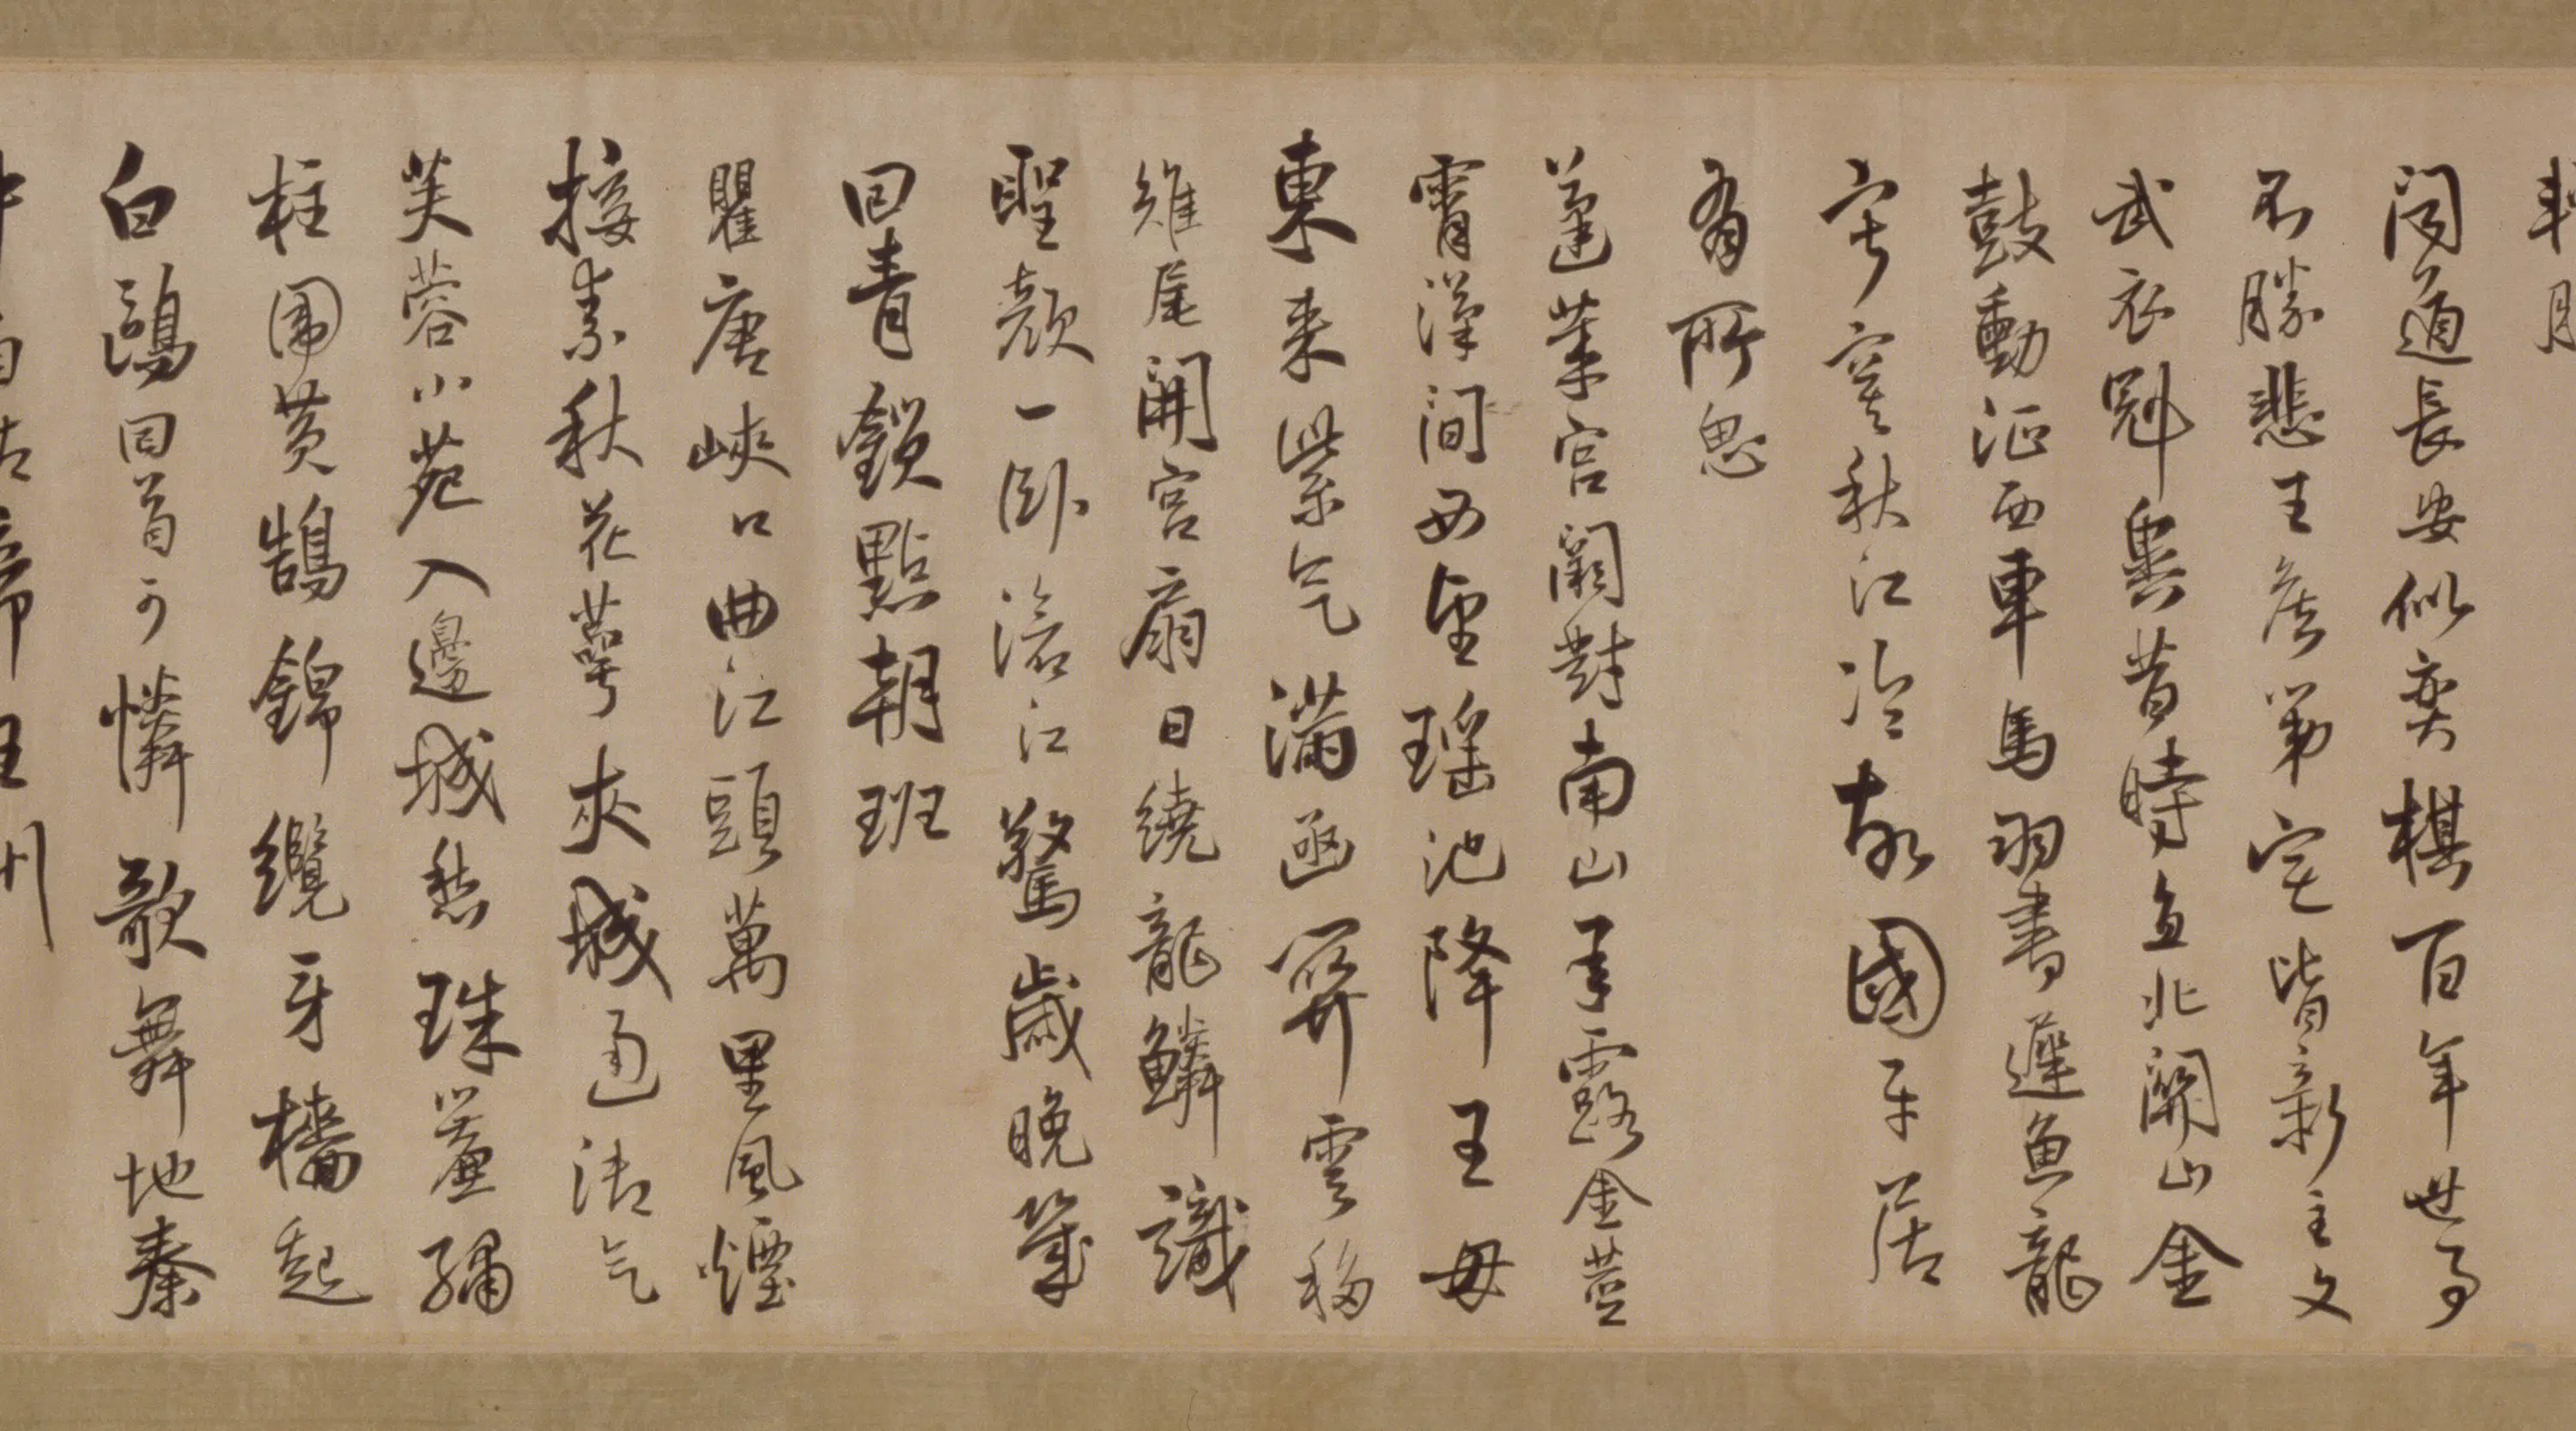 聞道長安似奕棋百年世事
不勝悲王侯第宅皆新主文
武衣冠異昔時直北關山金
鼓動征西車馬羽書遲魚龍
寂寞秋江冷故國平居
有所思
蓬萊宮闕對南山承露金莖
霄漢間西望瑤池降王母
東來紫气滿函關雲移
雉尾開宮扇日繞龍鱗識
聖顏一臥滄江驚歲晚幾
回青鎖點朝班
瞿唐峽口曲江頭萬里風煙
接素秋花萼夾城通御气
芙蓉小苑入邊城愁珠簾繡
柱圍黃鵠錦纜牙檣起
白鷗回首可憐歌舞地秦
中自古帝王州